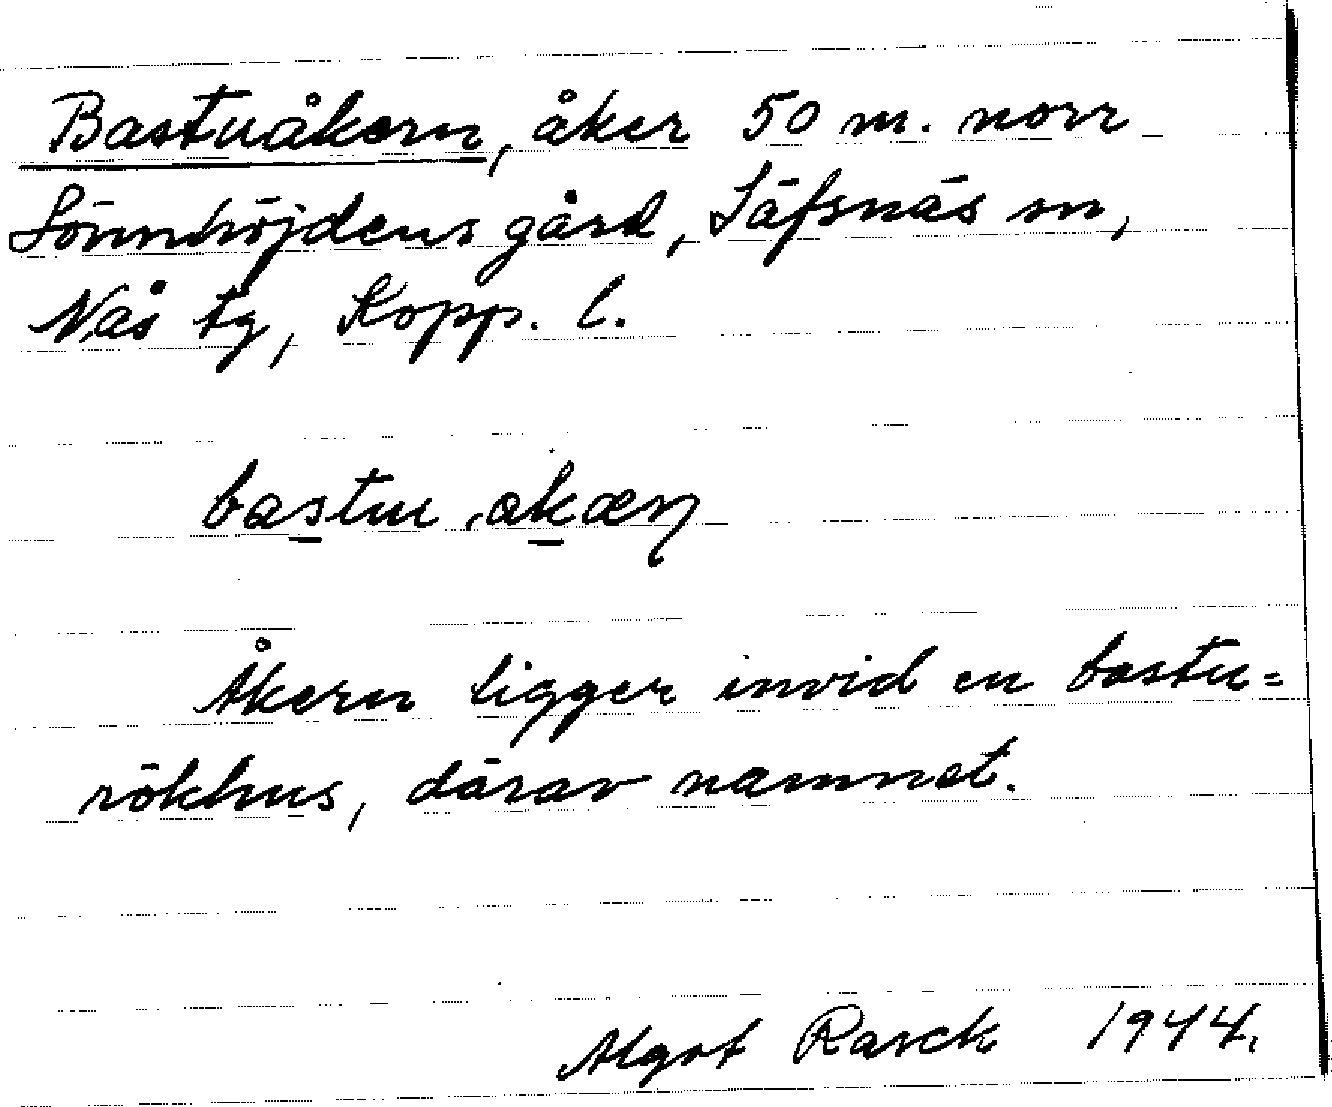 Bastuåkern, åker 50 m. norr
Sönnhöjdens gård, Säfsnäs sn,
Nås tg, Kopp. l.
bastu ˌakæɳ
Åkern ligger invid en bastu=
rökhus, därav namnet.
Algot Rasck 1944.